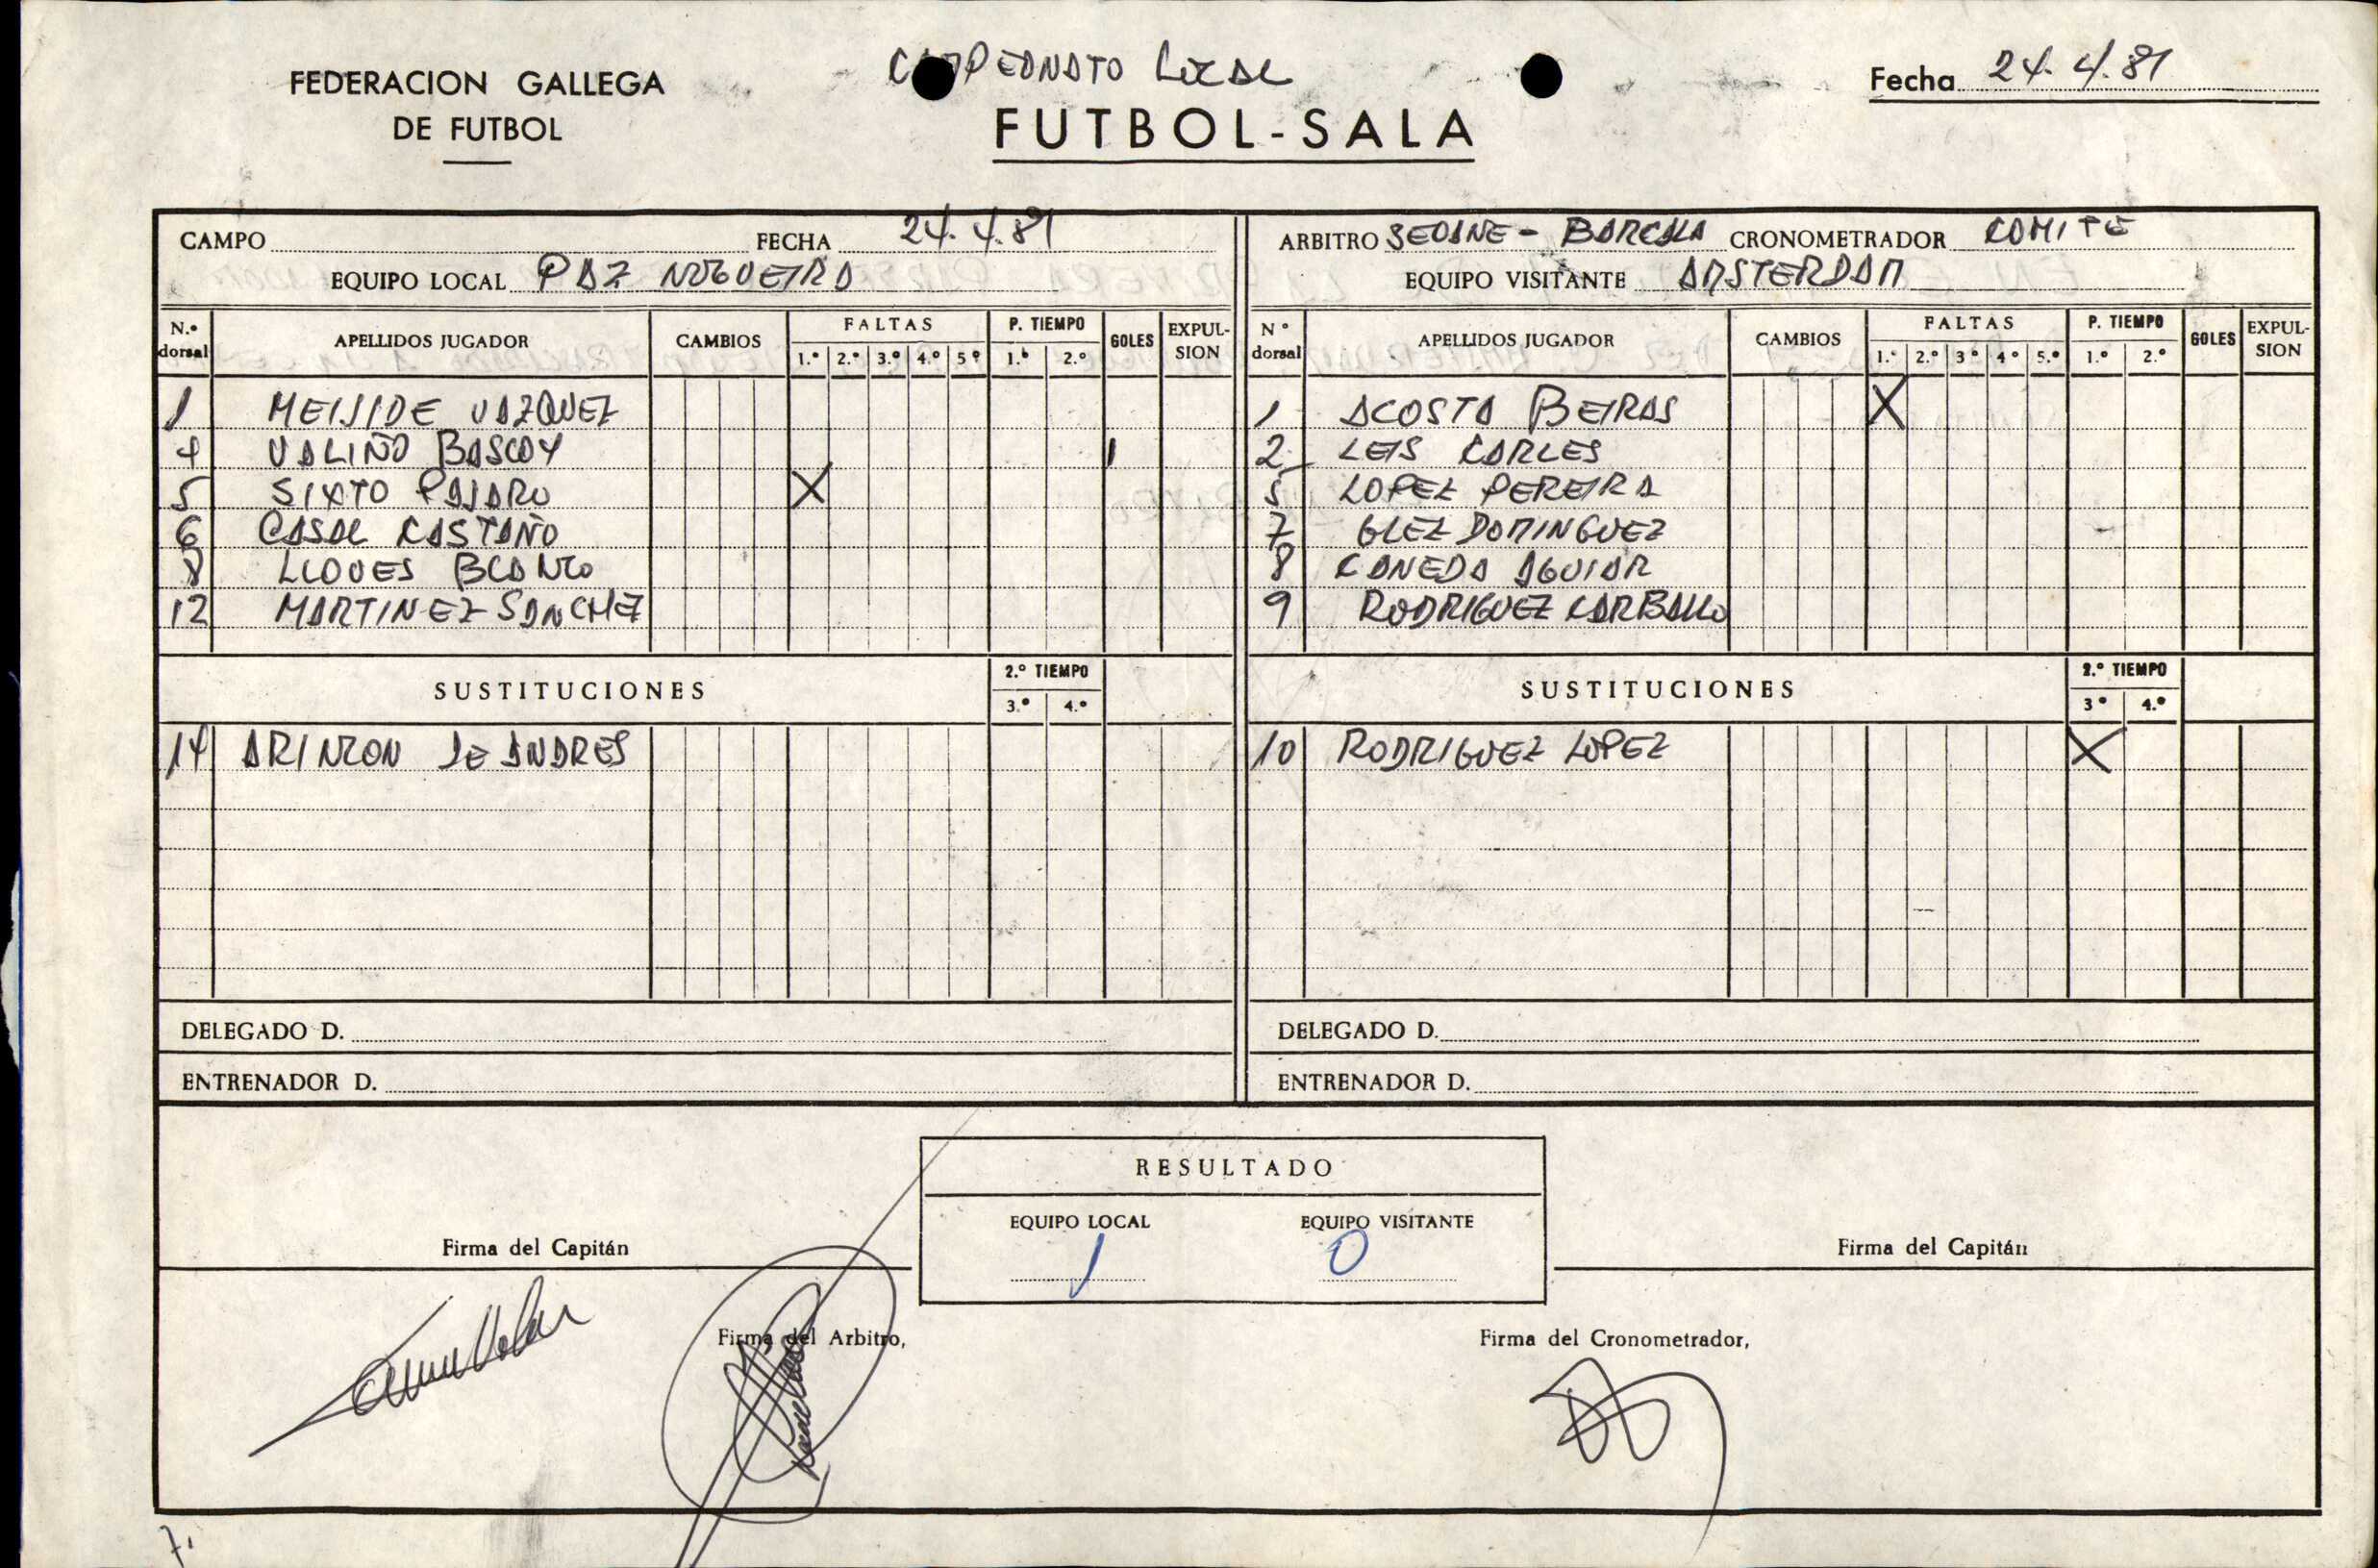 CAMPEONATO LOCAL
FEDERACION GALLEGA
DE FUTBOL
FUTBOL-SALA
Fecha 24.4.81
CAMPO FECHA 24.4.81
EQUIPO LOCAL PAZ NOGUEIRA
ARBITRO SEOANE - BARCALA CRONOMETRADOR COMITE
EQUIPO VISITANTE AMSTERDAM
N.º dorsal APELLIDOS JUGADOR CAMBIOS FALTAS 1.º 2.º 3.º 4.º 5º P. TIEMPO 1.º 2.º GOLES EXPULSION
1 MEIJIDE VAZQUEZ
4 VALIÑO BASCOY 1
5 SIXTO PAJARO X
6 CASAL CASTAÑO
8 LLOVES BLANCO
12 MARTINEZ SANCHEZ
SUSTITUCIONES 2.º TIEMPO 3.º 4.º
14 ARINCON DE ANDRES
DELEGADO D.
ENTRENADOR D.
Nº dorsal APELLIDOS JUGADOR CAMBIOS FALTAS 1.º 2.º 3º 4º 5.º P. TIEMPO 1.º 2.º GOLES EXPULSION
1 ACOSTA BEIRAS X
2 LEIS CARLES
5 LOPEZ PEREIRA
7 GLEZ DOMINGUEZ
8 CANEDA AGUIAR
9 RODRIGUEZ CARBALLO
SUSTITUCIONES 2.º TIEMPO 3º 4.º
10 RODRIGUEZ LOPEZ X
DELEGADO D.
ENTRENADOR D.
RESULTADO
EQUIPO LOCAL EQUIPO VISITANTE
1 0
Firma del Capitán
Firma del Capitán
Firma del Arbitro,
Firma del Cronometrador,
7.